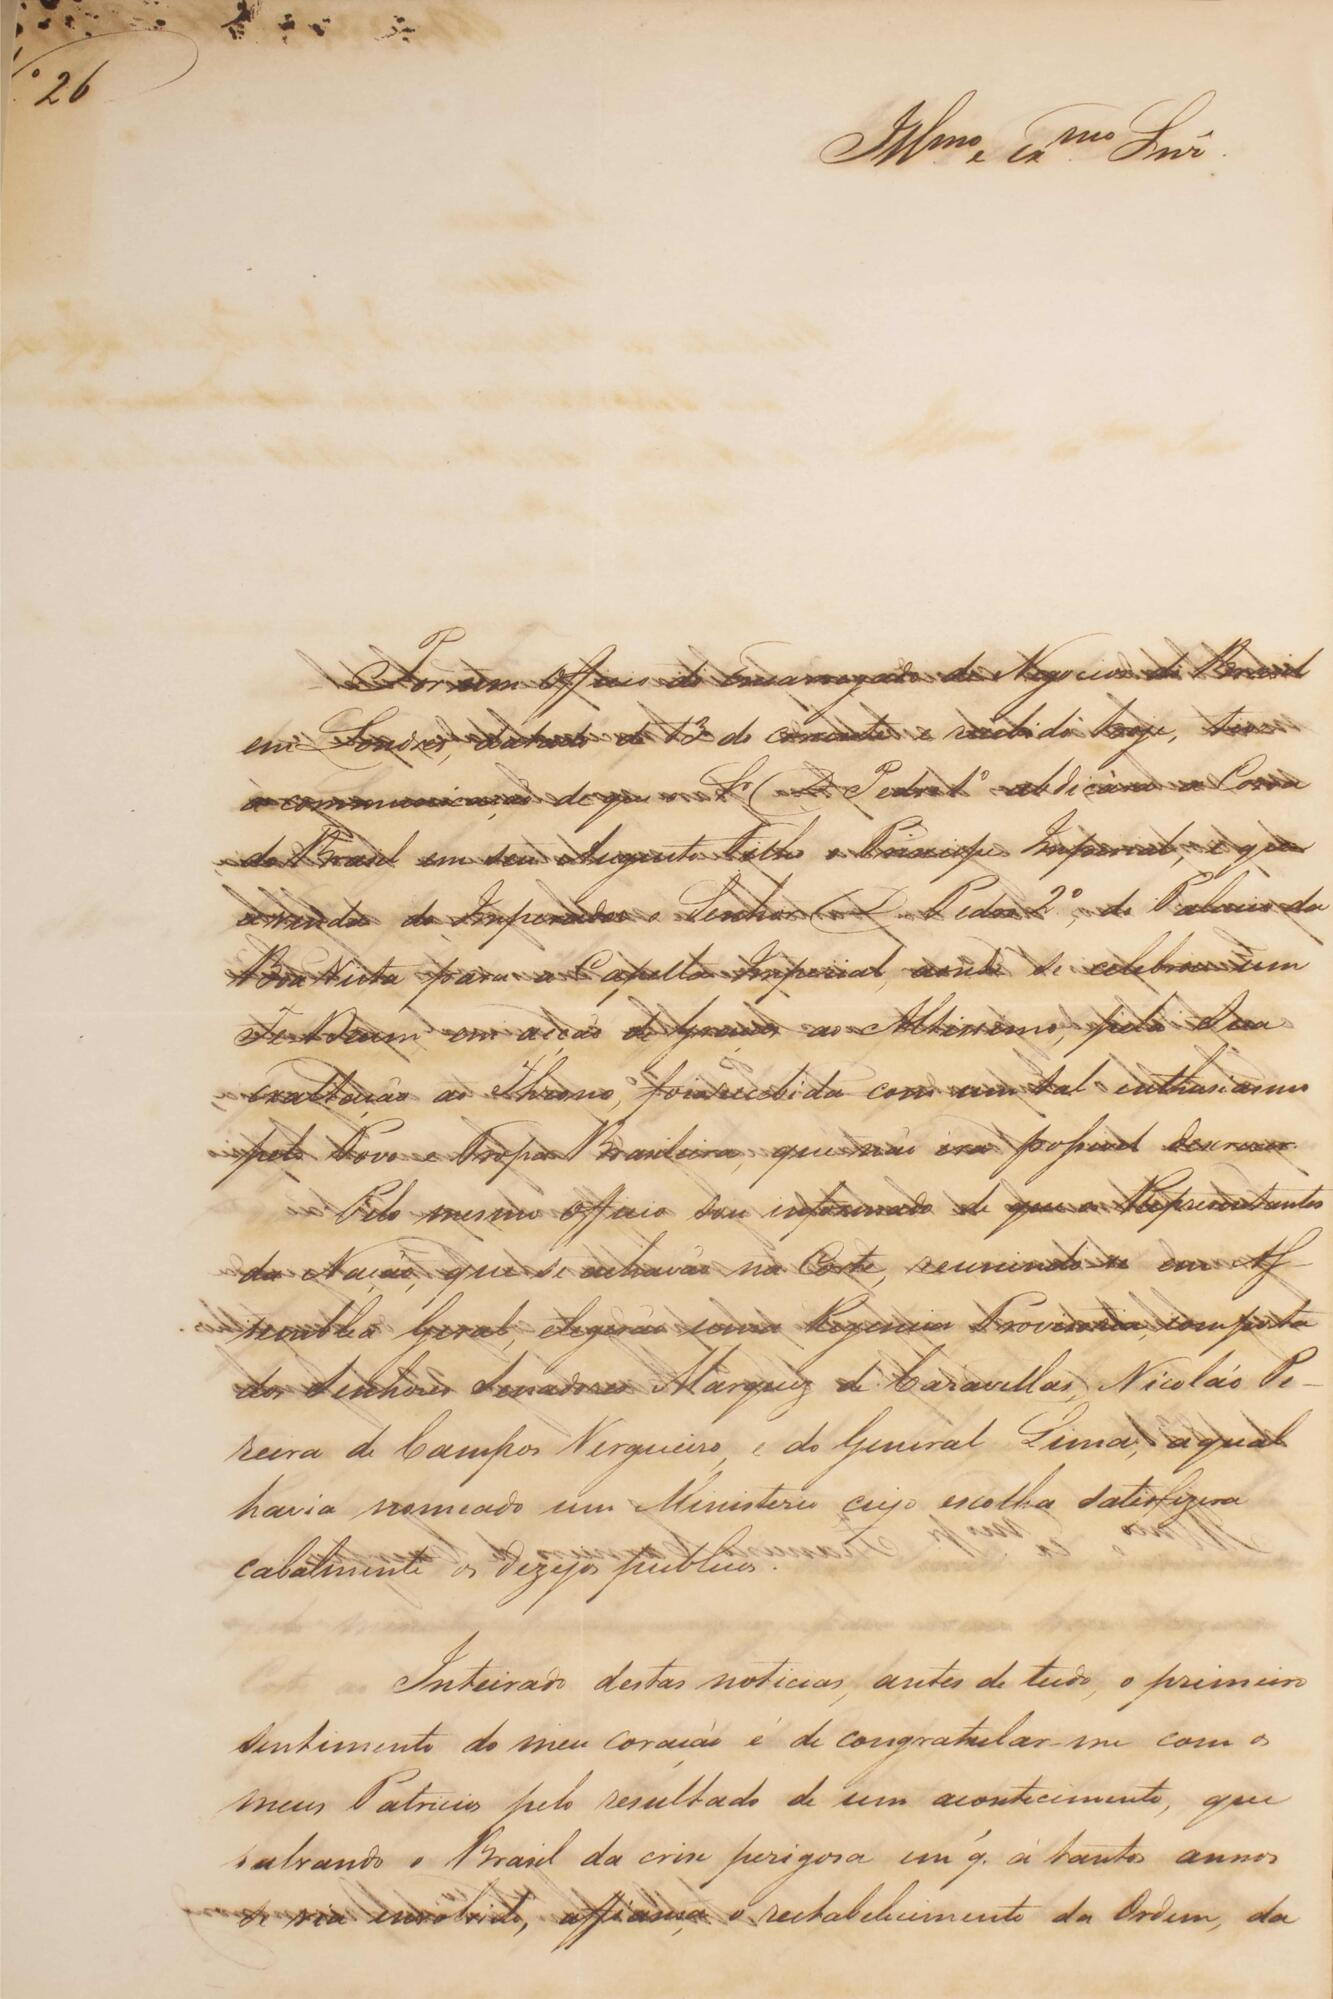 º 26
Illmo e Exmo Snr.
Por um Officio do Encarregado de Negocios do Brasil
em Londres, datado de 13 do corrente e recebido hoje, tive
a communicação de que o Sr. D. Pedro 1º abdicára a Coroa
do Brasil em seu Augusto Filho o Principe Imperial, e que
a vinda do Imperador o Senhor D. Pedro 2º, do Palacio da
Boa Vista para a Capella Imperial, aonde se celebrou um
Te Deum em acção de Graças ao Altissimo, pela Sua
exaltação ao Throno, foi recebida com um tal enthusiasmo
pelo Povo e Tropa Brasileira, que não era possivel descrever.
Pelo mesmo Officio sou informado de que os Representantes
da Nação, que se achavão na Corte, reunindo-se em As-
semblea Geral, elegerão uma Regencia Provisoria, composta
dos Senhores Senadores Marquez de Caravellas, Nicoláo Pe-
reira de Campos Vergueiro, e do General Lima, a qual
havia nomeado um Ministerio cuja escolha satisfizera
cabalmente os dezejos publicos.
Inteirado destas noticias, antes de tudo, o primeiro
sentimento do meu coração é de congratular-me com os
meus Patricios pelo resultado de um acontecimento, que
salvando o Brasil da crise perigosa em q. á tantos annos
se via envolvido, affiança o restabelecimento da Ordem, da